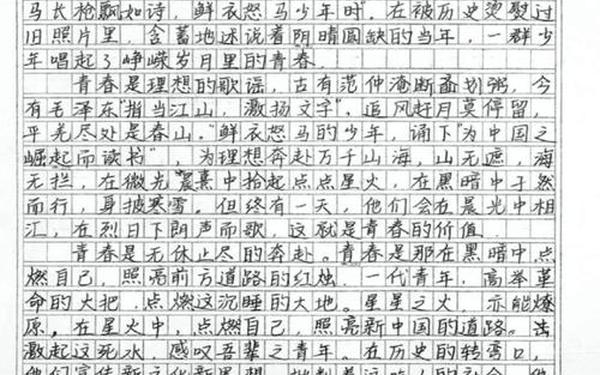 马长枪飘如诗，鲜衣怒马少年时"。在被历史烫熨过
旧照片里，含蓄地述说着阴晴圆缺的当年，一群少
年唱起了峥嵘岁月里的青春.
青春是理想的歌谣，古有范仲淹断齑划粥，今
有毛泽东"指点江山，激扬文字"，追风赶月莫停留，
平芜尽处是春山."鲜衣怒马的少年，诵下"为中国之
崛起而读书"，为理想奔赴万千山海，山无遮，海
无拦，在微光晨熹中拾起点点星火，在黑暗中孑然
而行，身披寒雪。但终有一天，他们会在晨光中相
汇，在烈日下朗声而歌，这就是青春的价值.
青春是无休止尽的奔赴。青春是那在黑暗中,点
燃自己，照亮前方道路的红烛.一代青年，高举革
命的大把.点燃这沉睡的大地。星星之火亦能燎
原，在星火中，点燃自己，照亮新中国的道路。
激起这死水，感叹吾辈之青年。在历史的转弯口，